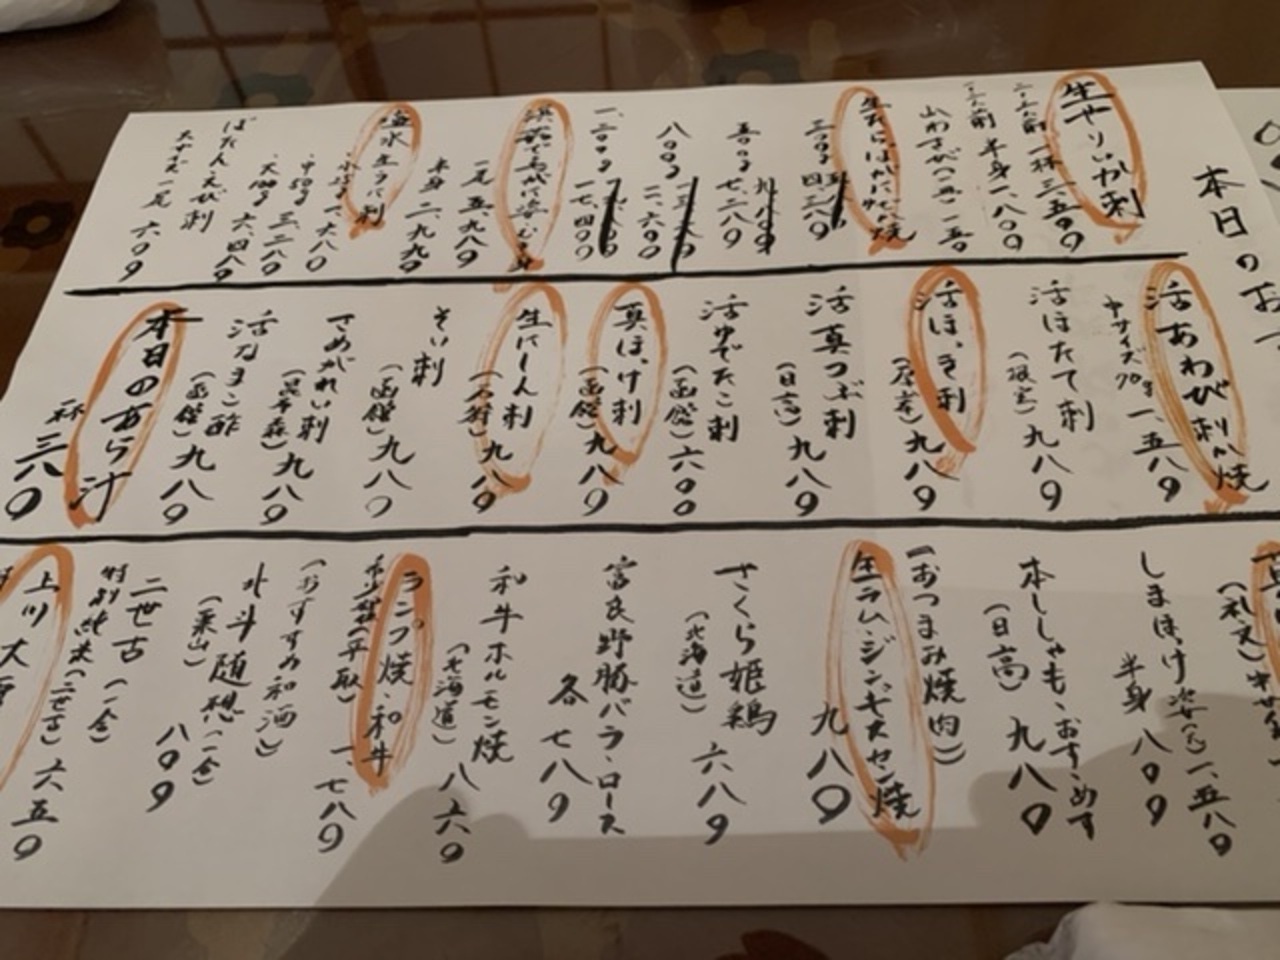 本日のおす
生やりいか刺
二・三人前 一杯 三、五〇〇
一・二人前 半身 一、八〇〇
山わさび(一五)一五〇
生たらばがに 焼
三〇〇g 四、三八〇
五〇〇g 七、二八〇
八〇〇g 一二、六〇〇
一、二〇〇g 一七、四〇〇
一尾 五、九八〇
半身 二、九九〇
塩水生うに刺
小25g 一、六八〇
中50g 三、二八〇
大100g 六、四八〇
ぼたんえび刺
大サイズ一尾 六〇〇
活あわび刺か焼
中サイズ70g 一、五八〇
活ほたて刺
九八〇
活ほっき刺
九八〇
活真つぶ刺
(日高)九八〇
活ゆでたこ刺
(函館)六〇〇
真ほっけ刺
(函館)九八〇
生にしん刺
(石狩)九八〇
そい刺
(函館)九八〇
さめがれい刺
(昆布森)九八〇
活なまこ酢
(函館)九八〇
本日のあら汁
一杯 三八〇
(礼文)
しまほっけ姿 一、五八〇
半身 八〇〇
本ししゃも、おす・めす
(日高)九八〇
(おつまみ焼肉)
生ラムジンギスカン焼
九八〇
さくら姫鶏
(北海道)六八〇
富良野豚バラ・ロース
各 七八〇
和牛ホルモン焼
(北海道)八六〇
ランプ焼・和牛
(平取)一、七八〇
(おすすめ和酒)
北斗随想(一合)
(栗山)八〇〇
二世古(一合)
特別純米(二世古)六五〇
上川大雪